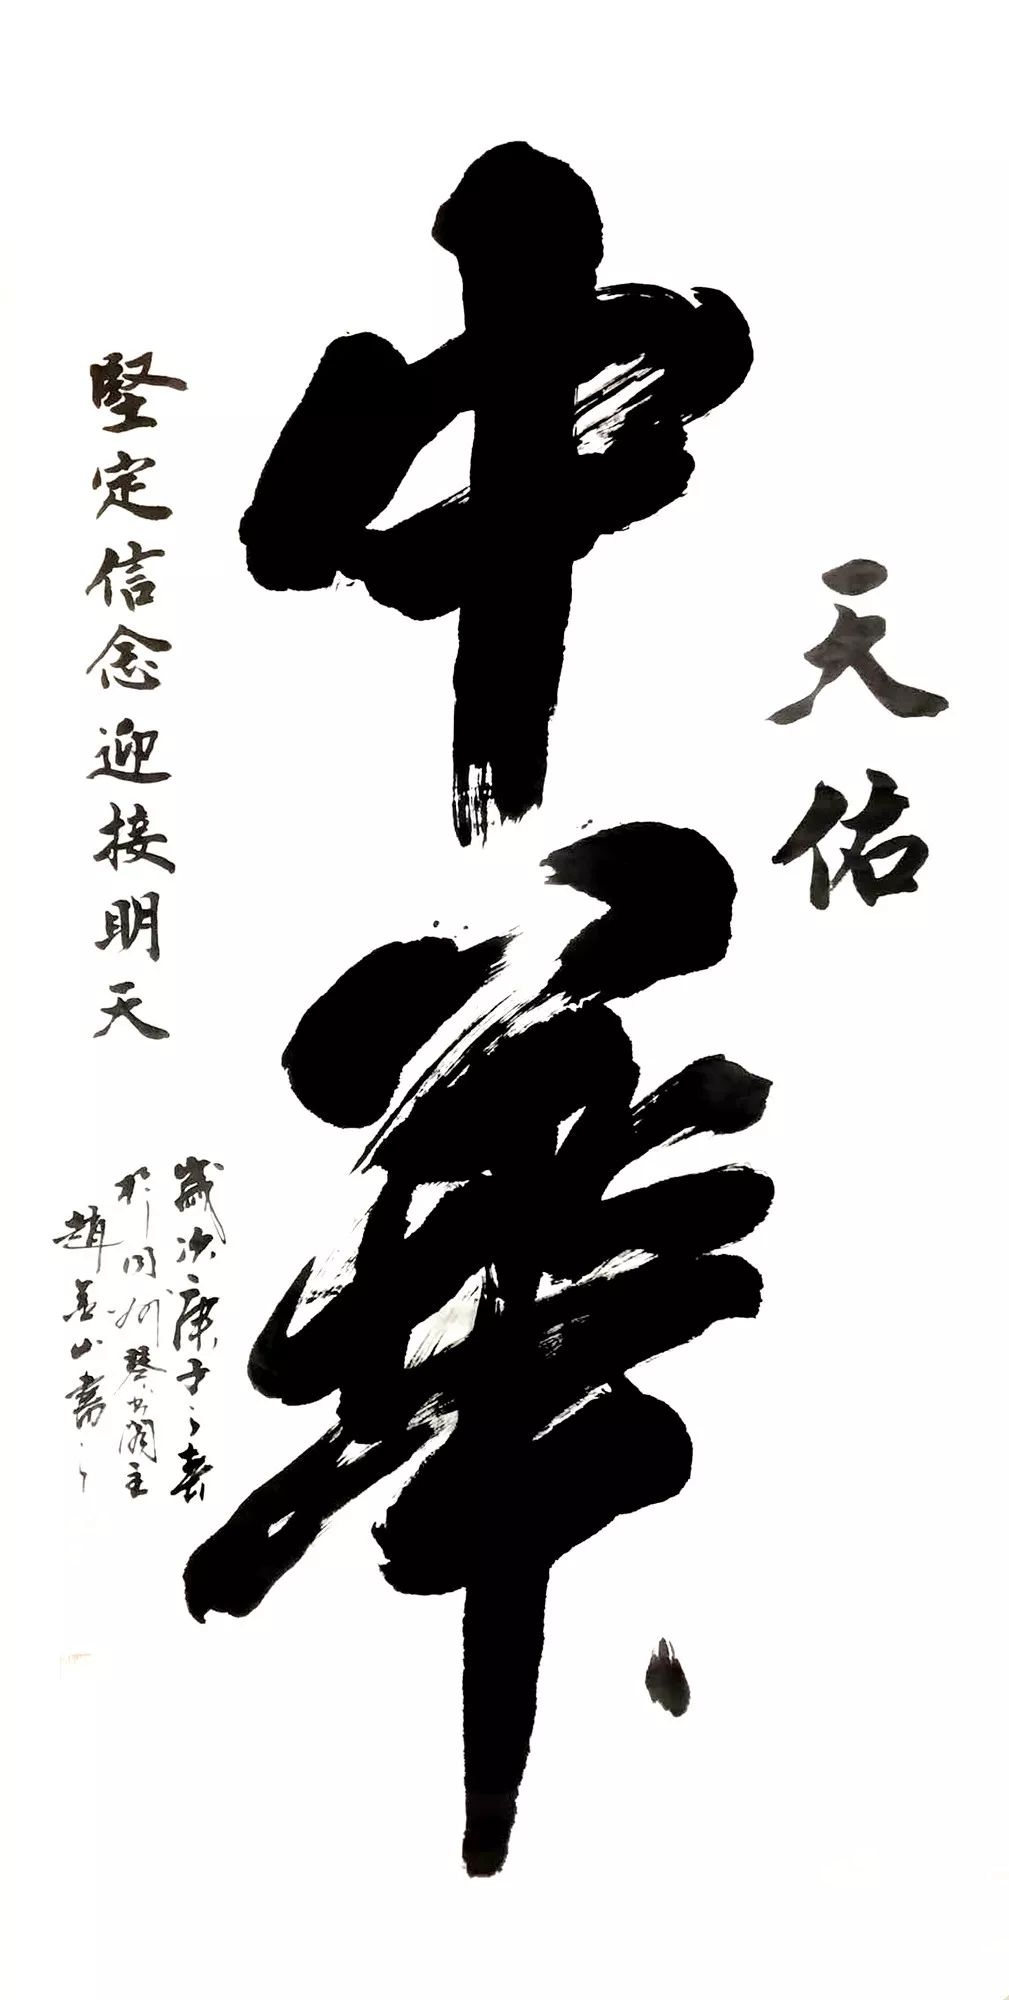 天佑
中華
堅定信念迎接明天
歲次庚子之春
於同州琴書閣主
趙善山書